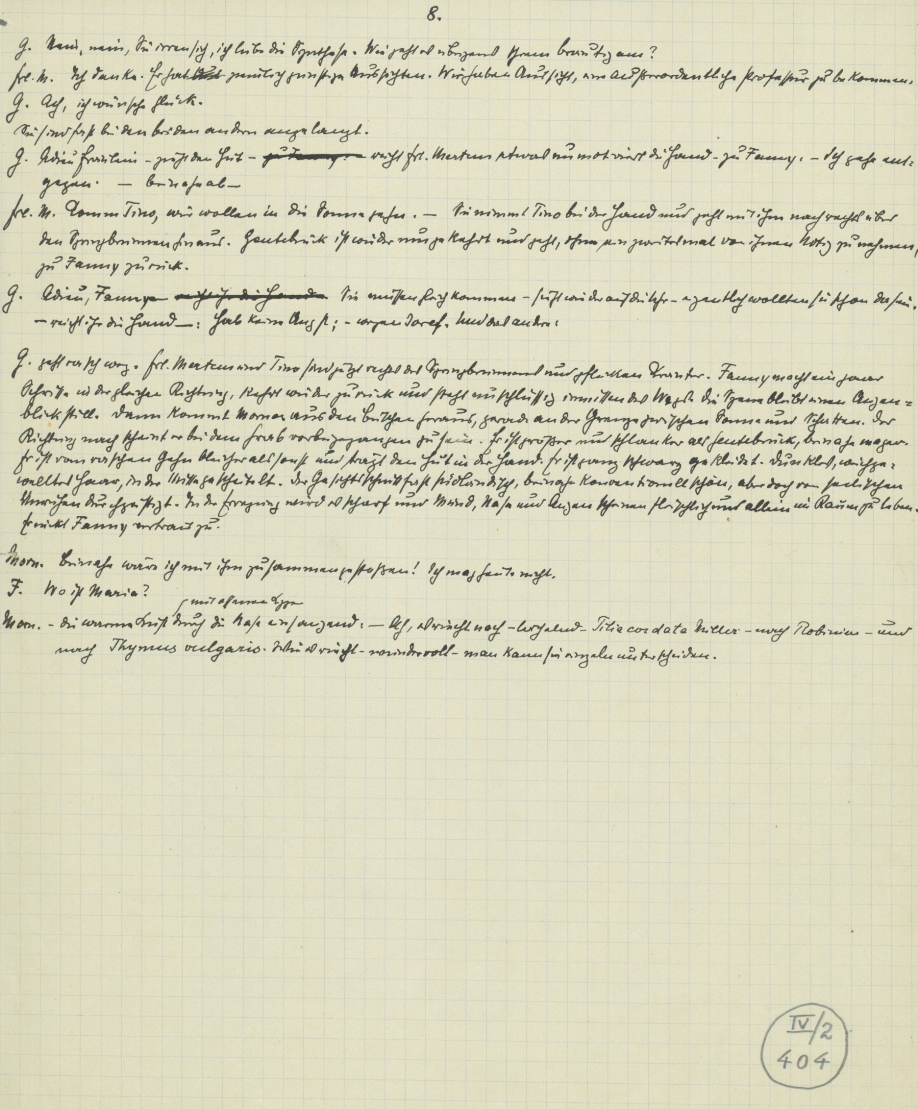 8.
G. Nein, nein, Sie irren sich, ich liebe die Synthese. Wie geht es übrigens Ihrem Bräutigam?
Frl. M. Ich danke. Er hat ziemlich günstige Aussichten. Wir haben Aussicht, eine außerordentliche Professur zu bekommen.
G. Ach, ich wünsche Glück.
Sie sind fast bei den beiden andern angelangt.
G. Adieu Fräulein – zieht den Hut – zu Fanny: – reicht Frl. Mertens etwas unmotiviert die Hand – zu Fanny: – Ich gehe ent=
gegen. — beinahe ab —
Frl. M. Komm Tino, wir wollen in die Sonne gehn. — Sie nimmt Tino bei der Hand und geht mit ihm nach rechts über
den Springbrunnen hinaus. Gentebrück ist wieder umgekehrt und geht, ohne ein zweitesmal von ihnen Notiz zu nehmen,
zu Fanny zurück.
G. Adieu, Fanny – reicht ihr die Hand – Sie müssen gleich kommen – sieht wieder auf die Uhr – eigentlich wollten sie schon da sein.
– reicht ihr die Hand —: Hab keine Angst; – wegen Josef. Und das andre:
G. geht rasch weg. Frl. Mertens und Tino sind jetzt rechts des Springbrunnens und pflücken Kräuter. Fanny macht ein paar
Schritte in der gleichen Richtung, kehrt wieder zurück und steht unschlüssig inmitten des Wegs. Die Szene bleibt einen Augen=
blick still. Dann kommt Mornas aus den Büschen heraus, gerade an der Grenze zwischen Sonne und Schatten. Der
Richtung nach scheint er bei dem Grab vorbeigegangen zu sein. Er ist größer und schlanker als Gentebrück, beinahe mager.
Er ist vom raschen Gehn bleicher als sonst und trägt den Hut in der Hand. Er ist ganz schwarz gekleidet. Dunkles, weichge=
welltes Haar, in der Mitte gescheitelt. Der Gesichtsschnitt fast südländisch, beinahe konventionell schön, aber doch von seelischen
Unruhen durchgeistigt. In der Erregung wird es scharf und Mund, Nase und Augen scheinen plötzlich und allein im Raum zu leben.
Er nickt Fanny vertraut zu.
Morn. Beinahe wäre ich mit ihm zusammengestoßen! Ich mag heute nicht.
F. Wo ist Maria?
mit offenen Lippen
Morn. – die warme Luft durch die Nase einsaugend: — Ach, es riecht nach – lächelnd – Tilia cordata Miller – nach Robinien – und
nach Thymus vulgaris. Wie es riecht – wundervoll – man kann sie einzeln unterscheiden.
IV/2
404